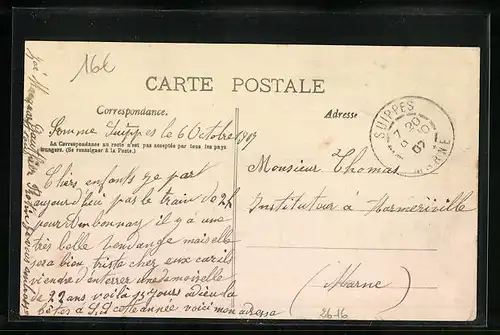 16E
CARTE POSTALE
Correspondance.
Adresse
Somme Suippes le 6 Octobre 1907
La Correspondance au recto n'est pas acceptée par tous les pays
étrangers. (Se renseigner à la Poste.)
SUIPPES
7 20
MARNE
07
Chers enfants je part
aujourd'hui par le train de 2h
pour Ambonnay il y a une
très belle vendange mais elle
sera bien triste chez eux car ils
viendre d'enterrer une demoiselle
de 22 ans voilà 15 jours adieu la
cette année voici mon adresse
Monsieur Thomas
Instituteur à Warmeriville
(Marne)
2616